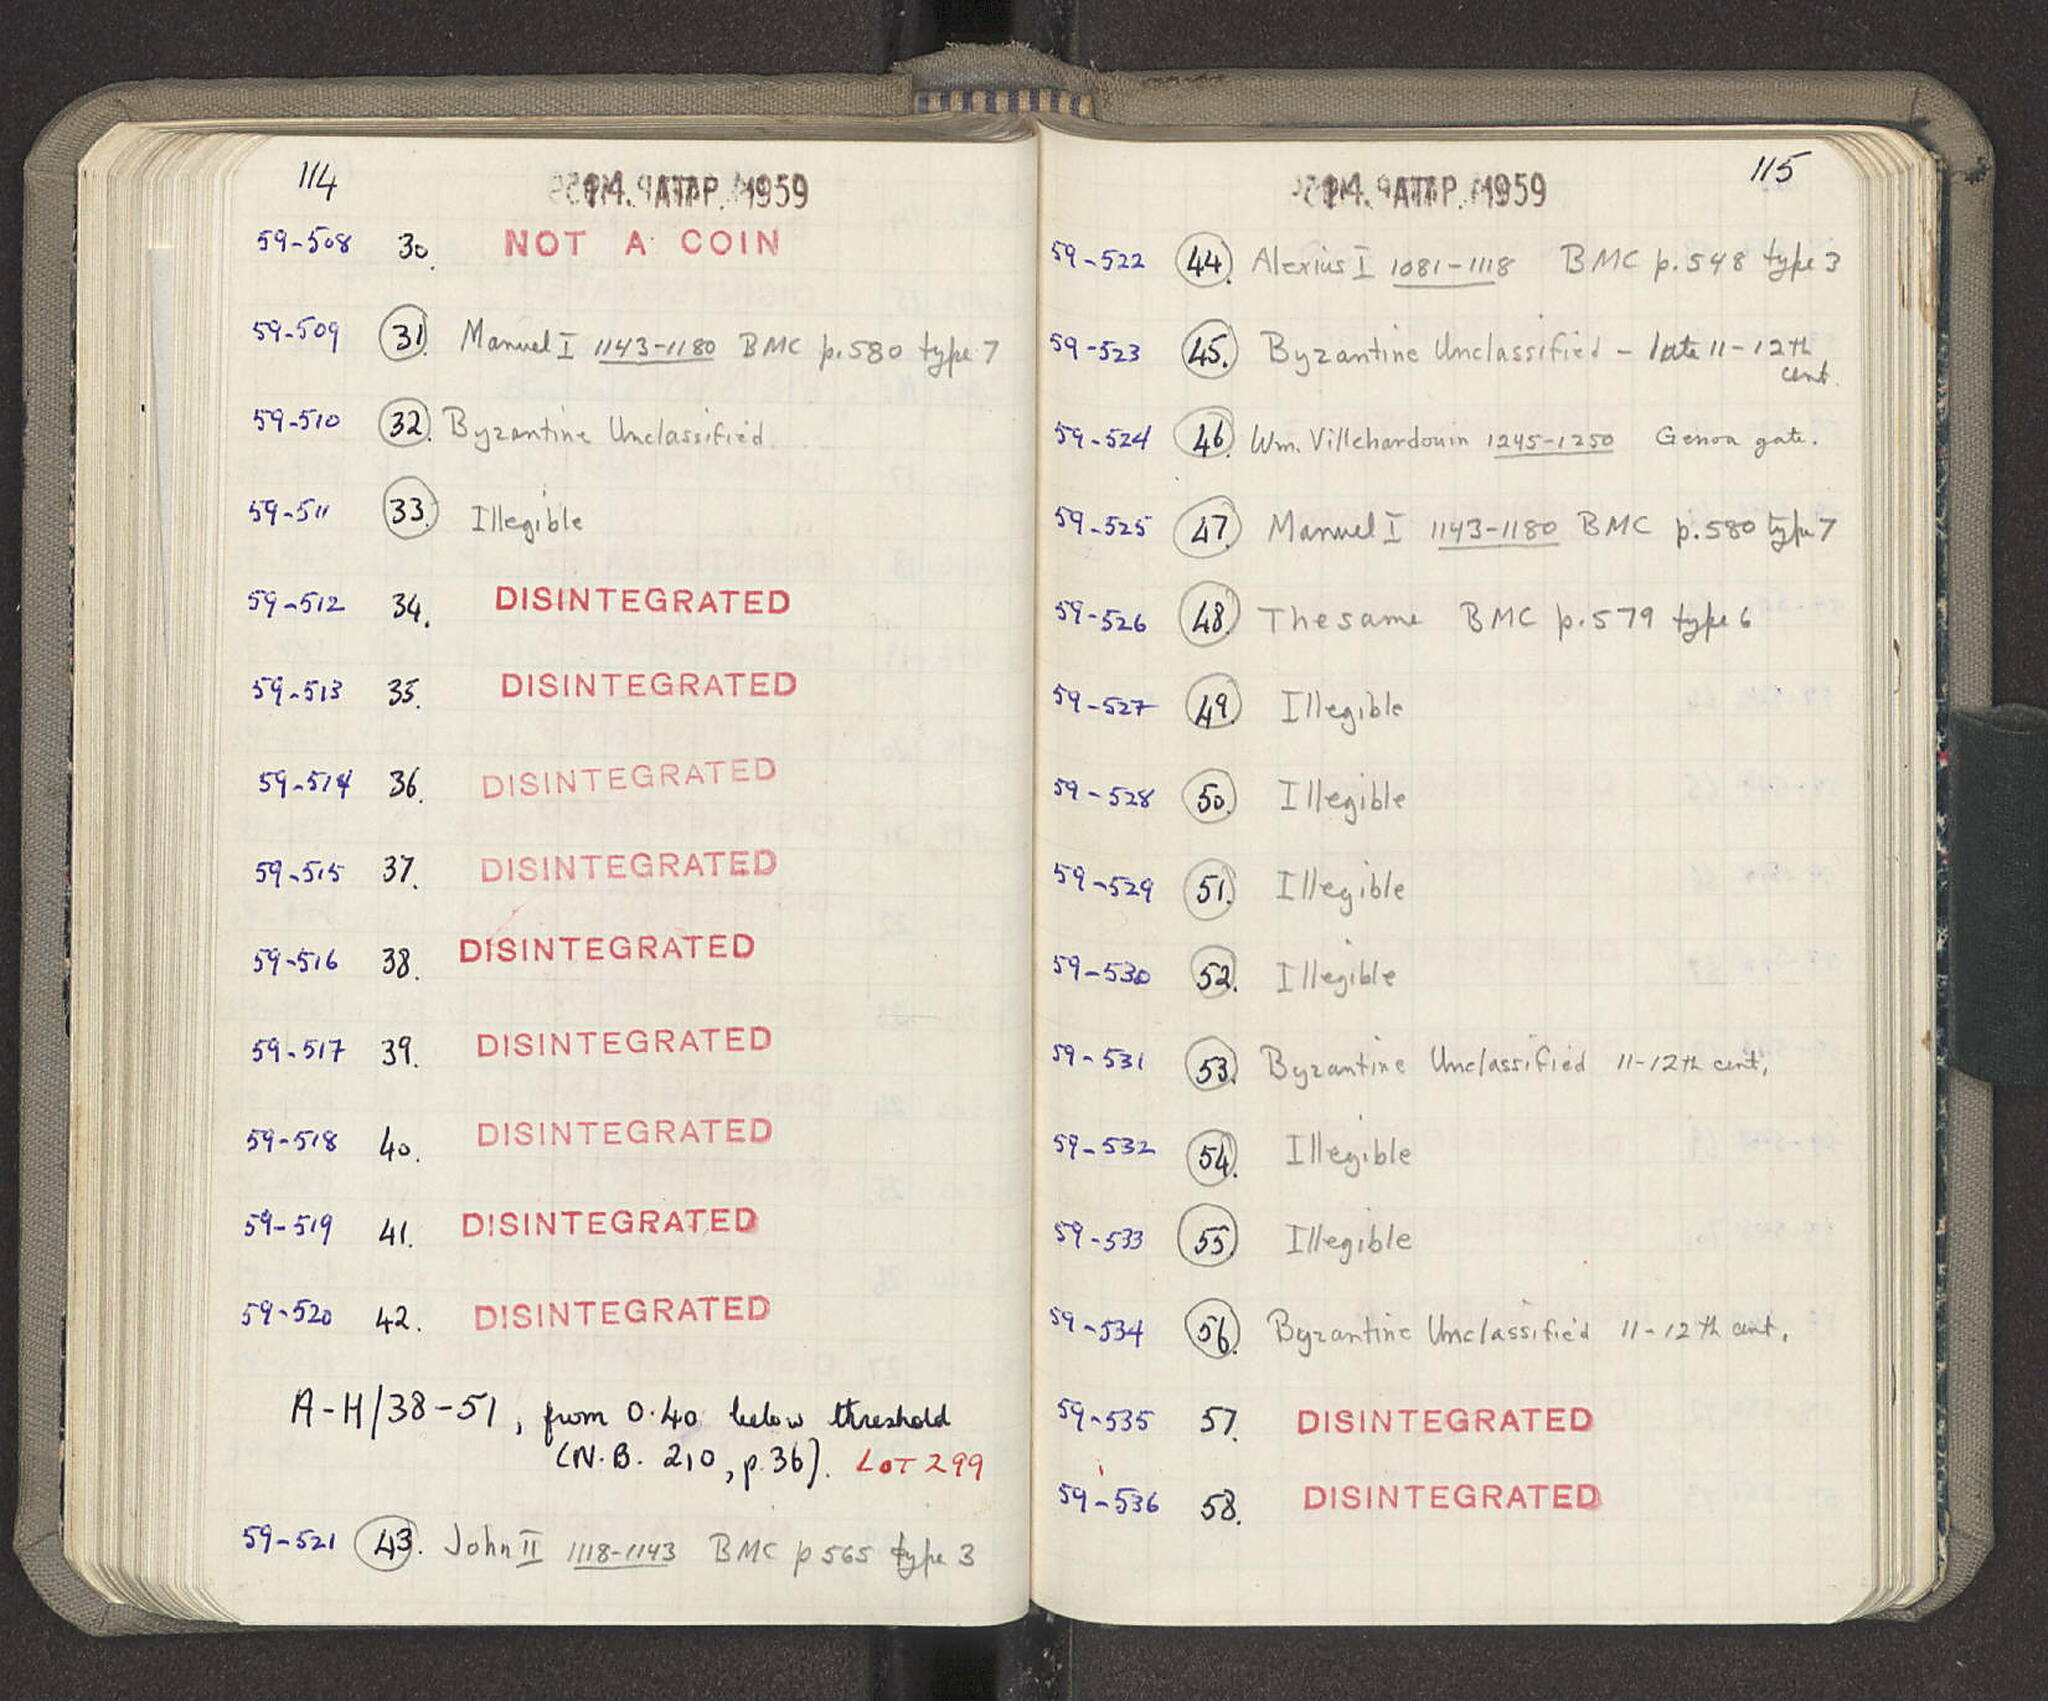 114
59-508 30. NOT A COIN
59-509 31. Manuel I 1143-1180 BMC p.580 type 7
59-510 32. Byzantine Unclassified
59-511 33. Illegible
59-512 34. DISINTEGRATED
59-513 35. DISINTEGRATED
59-514 36. DISINTEGRATED
59-515 37. DISINTEGRATED
59-516 38. DISINTEGRATED
59-517 39. DISINTEGRATED
59-518 40. DISINTEGRATED
59-519 41. DISINTEGRATED
59-520 42. DISINTEGRATED
A-H/38-51, from 0.40 below threshold
(N.B. 210, p.36). LOT 299
59-521 43. John II 1118-1143 BMC p 565 type 3
115
59-522 44. Alexius I 1081-1118 BMC p.548 type 3
59-523 45. Byzantine Unclassified - late 11-12th
cent.
59-524 46. Wm. Villehardouin 1245-1250 Genoa gate.
59-525 47. Manuel I 1143-1180 BMC p.580 type 7
59-526 48. The same BMC p.579 type 6
59-527 49. Illegible
59-528 50. Illegible
59-529 51. Illegible
59-530 52. Illegible
59-531 53. Byzantine Unclassified 11-12th cent.
59-532 54. Illegible
59-533 55. Illegible
59-534 56. Byzantine Unclassified 11-12th cent.
59-535 57. DISINTEGRATED
59-536 58. DISINTEGRATED